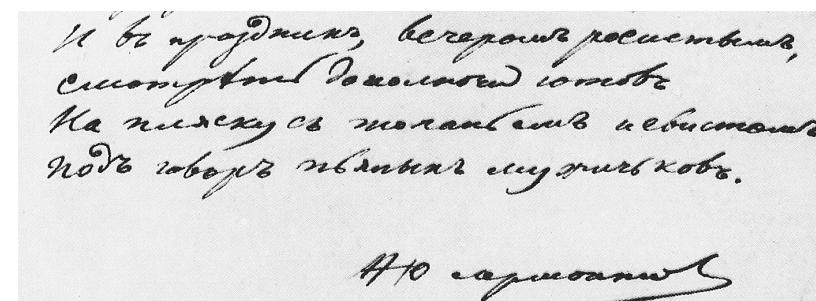 И въ праздникъ, вечеромъ росистымъ,
смотрѣть до полночи готовъ
На пляску съ топаньемъ и свистомъ
подъ говоръ пьяныхъ мужичьковъ.
М Ю Лермонтовъ